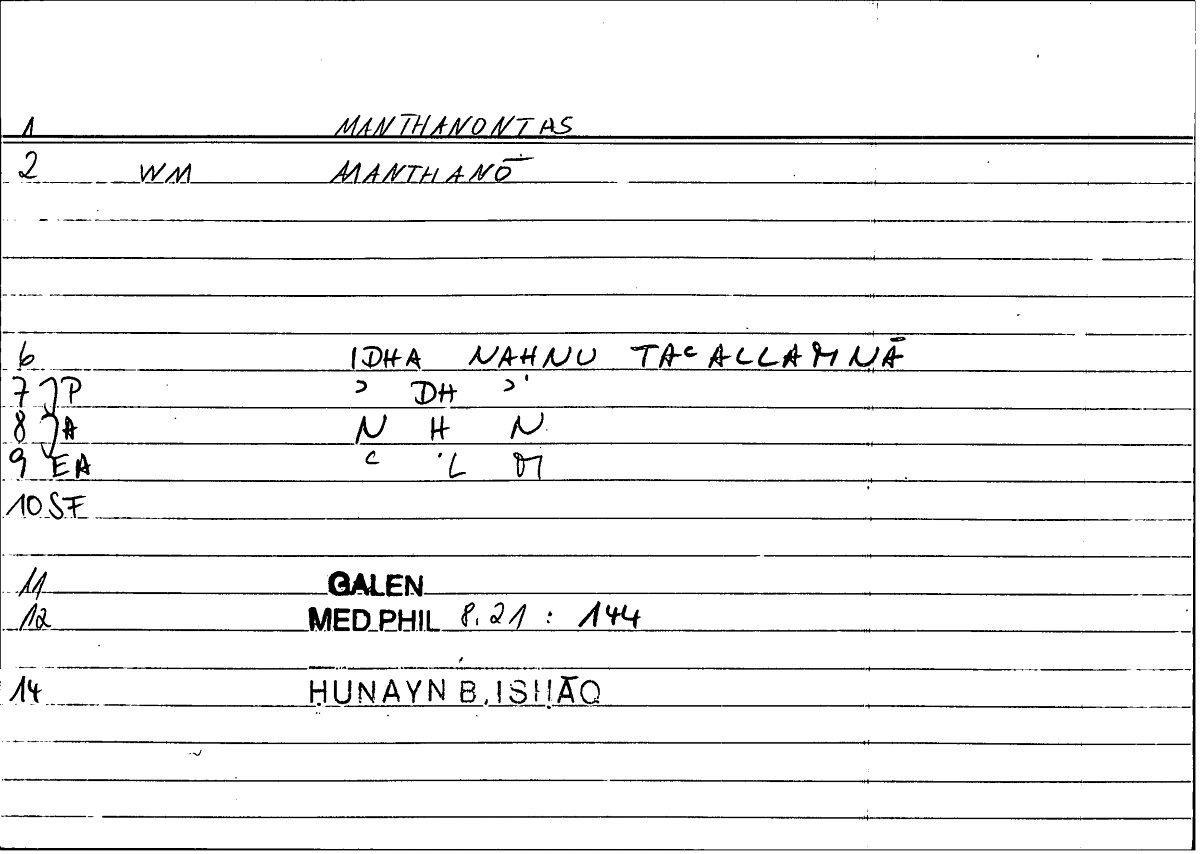 1 MANTHANONTAS
2 WM MANTHANŌ
6 IDHA NAHNU TAᶜALLAMNĀ
7 P ʾ DH ʾ
8 A N H N
9 EA ᶜ L M
10 SF
11 GALEN
12 MED PHIL 8.21 : 144
14 ḤUNAYN B. ISḤĀQ